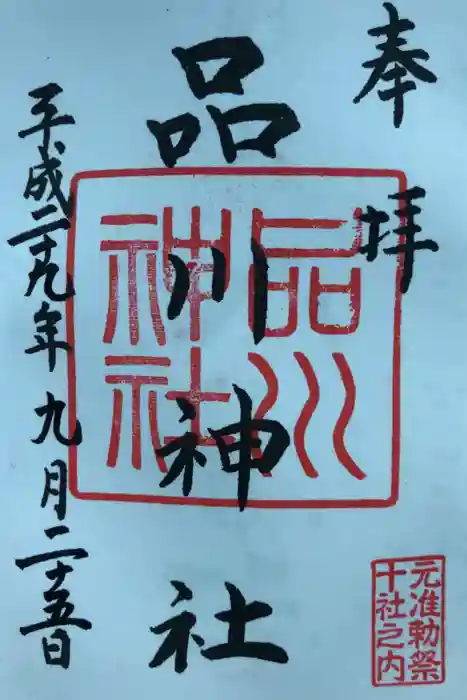 奉拝
品川神社
平成二十九年九月二十五日
品川
神社
元准勅祭
十社之内